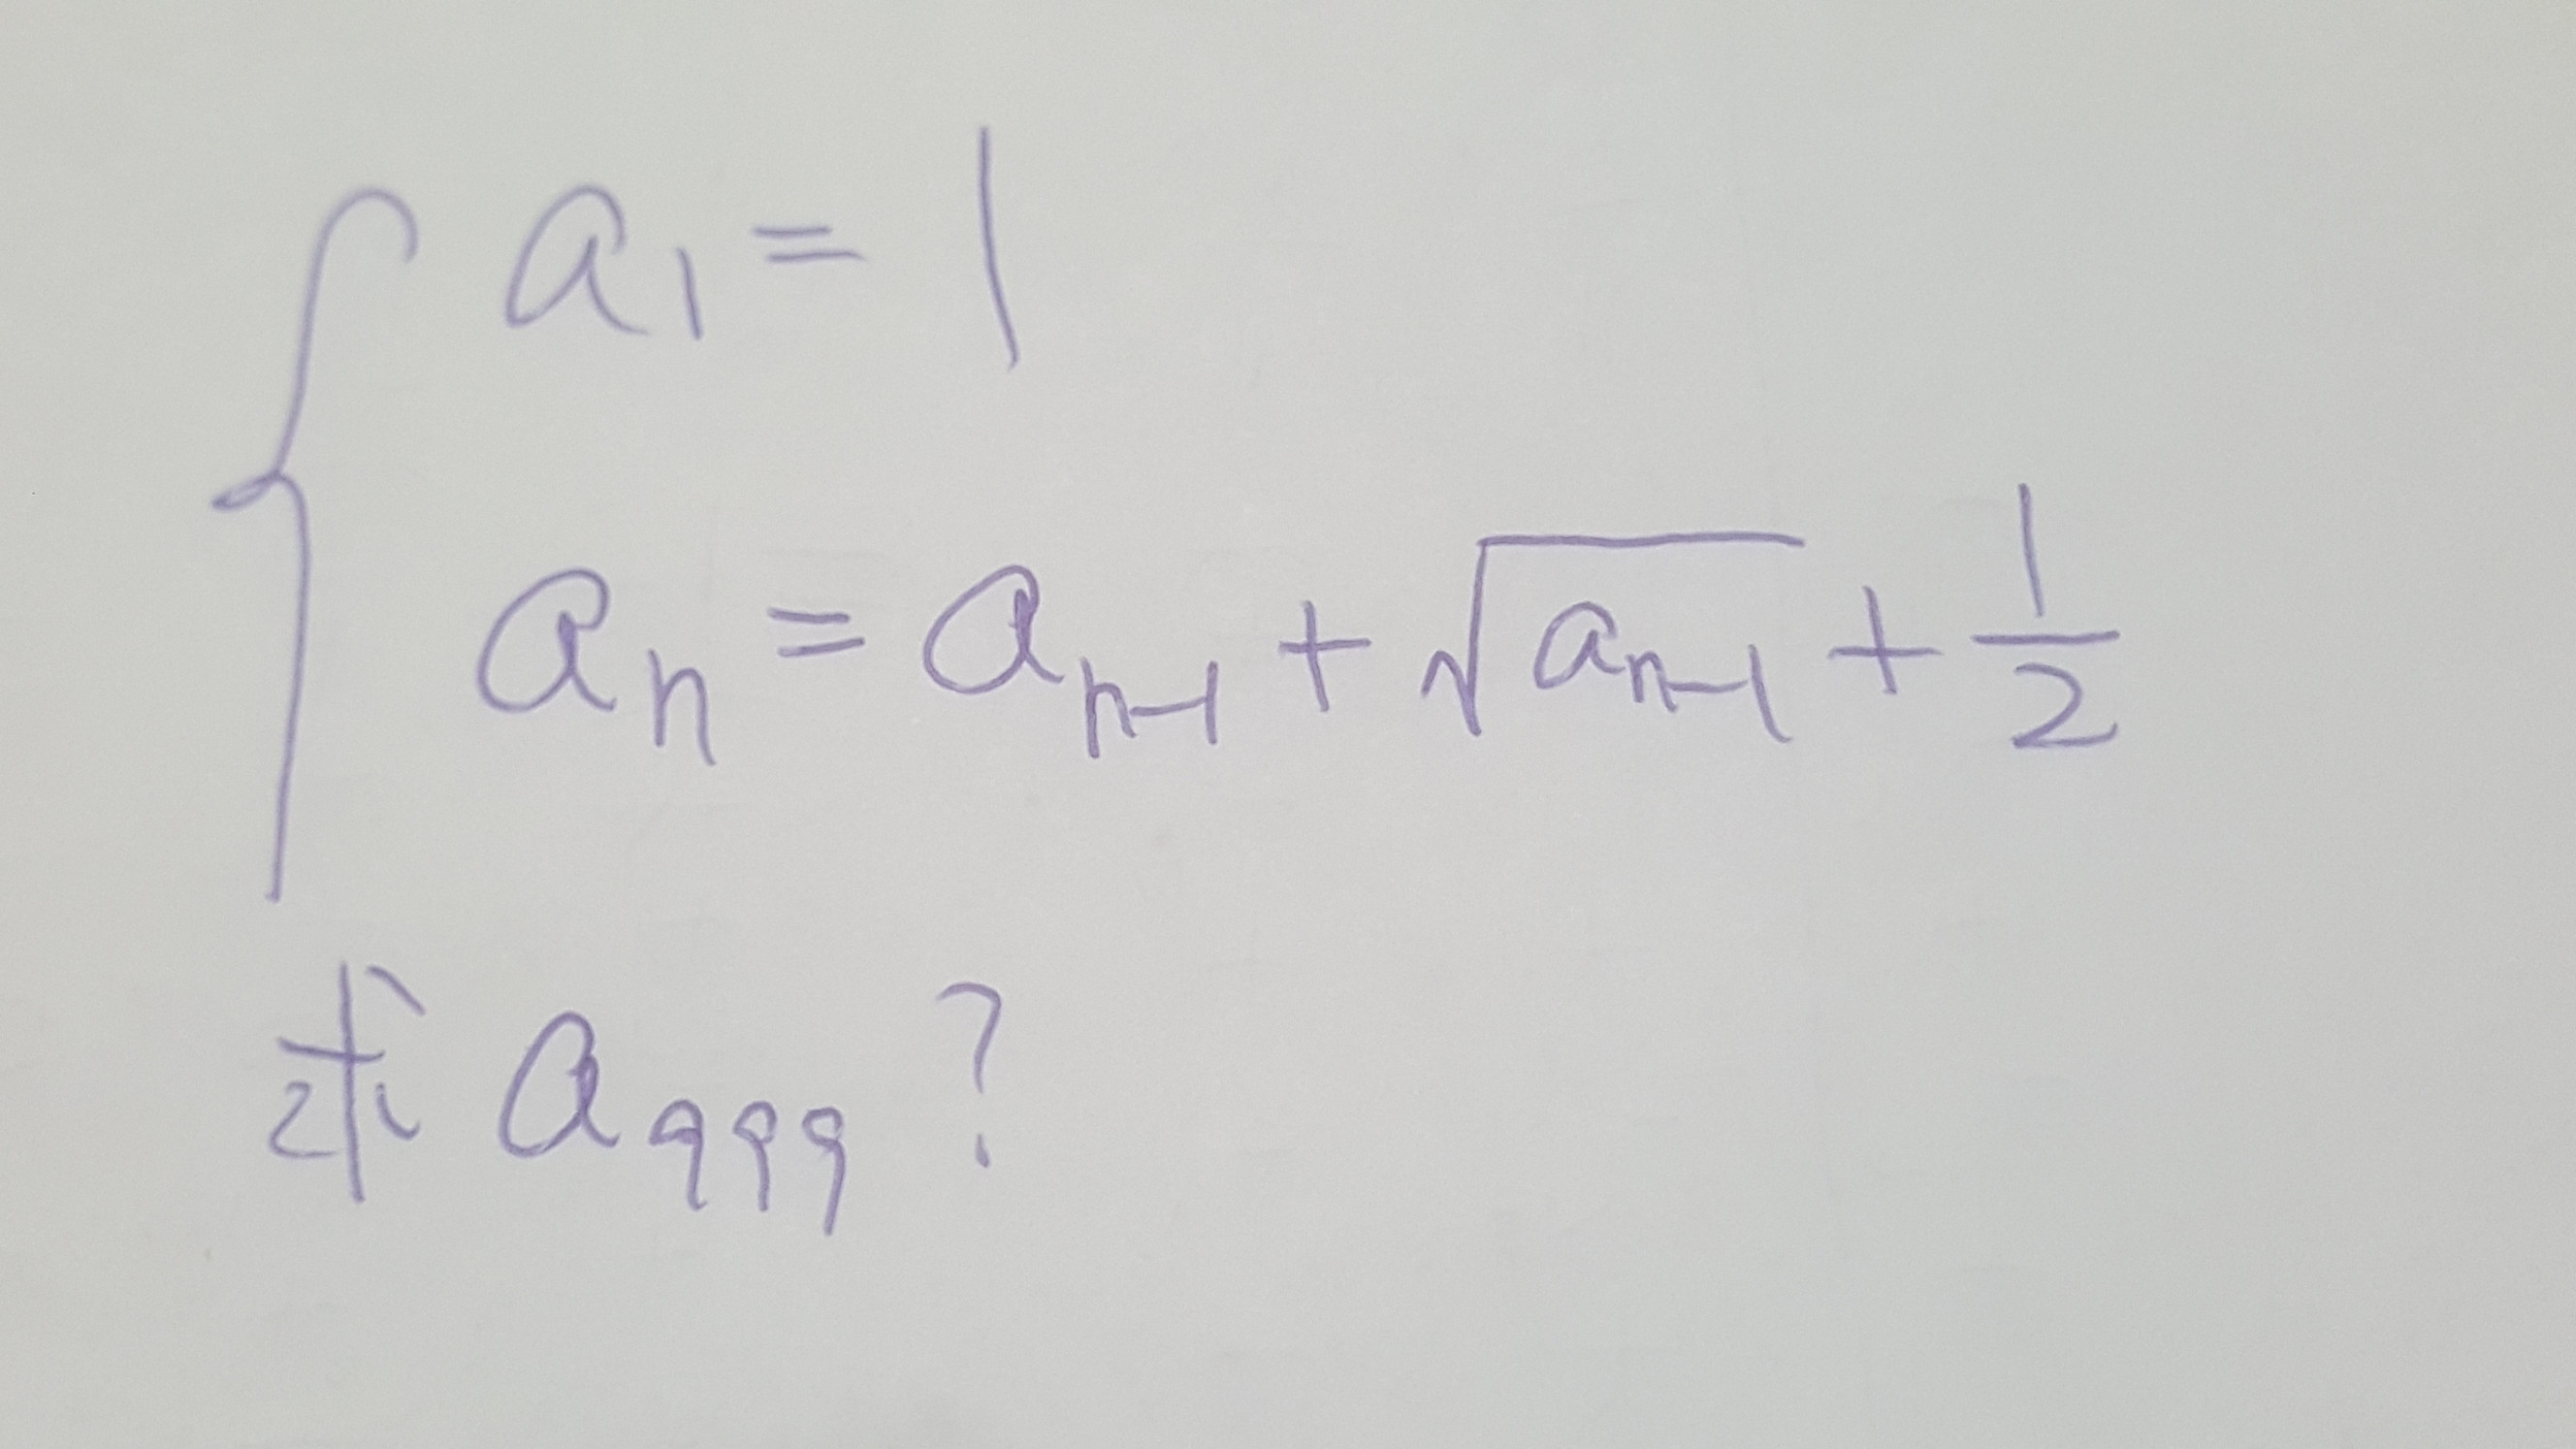 a₁ = 1
aₙ = aₙ₋₁ + √aₙ₋₁ + 1/2
求 a₉₉₉ ?